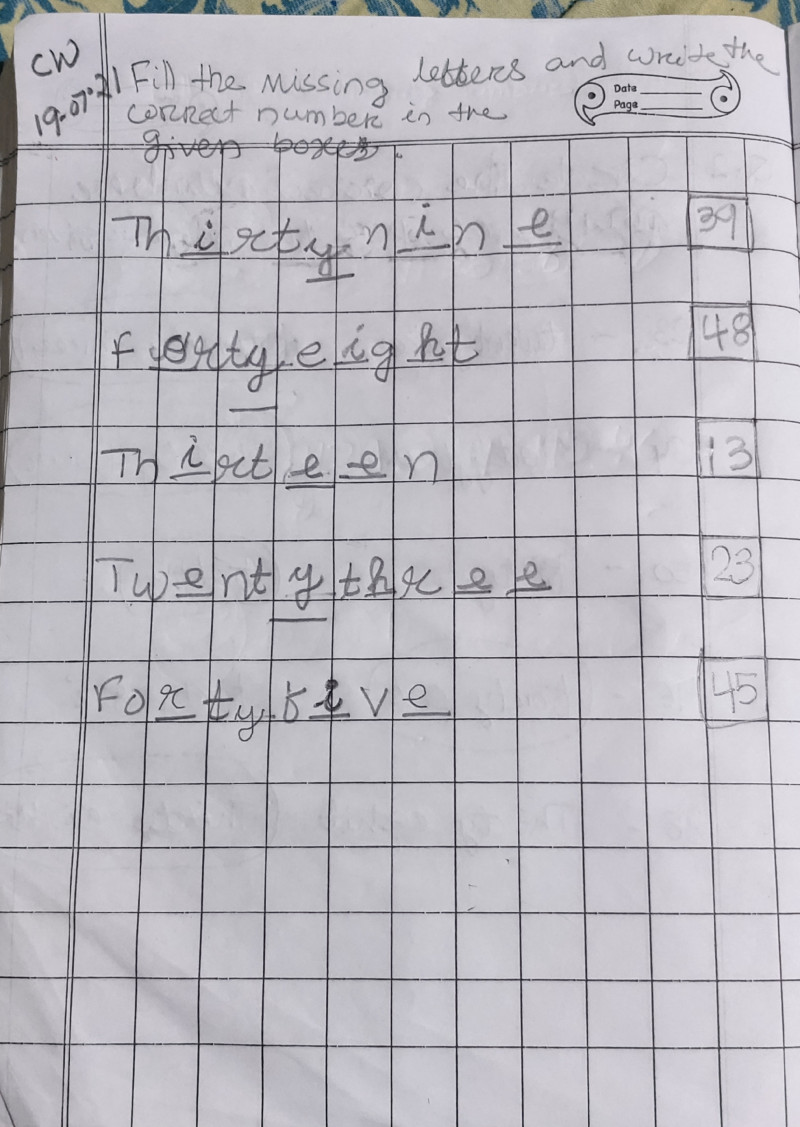 CW
19-07-21
Fill the missing letters and write the
correct number in the
given boxes.
Date
Page
Thirty nine 39
Forty eight 48
Thirteen 13
Twenty three 23
Forty five 45